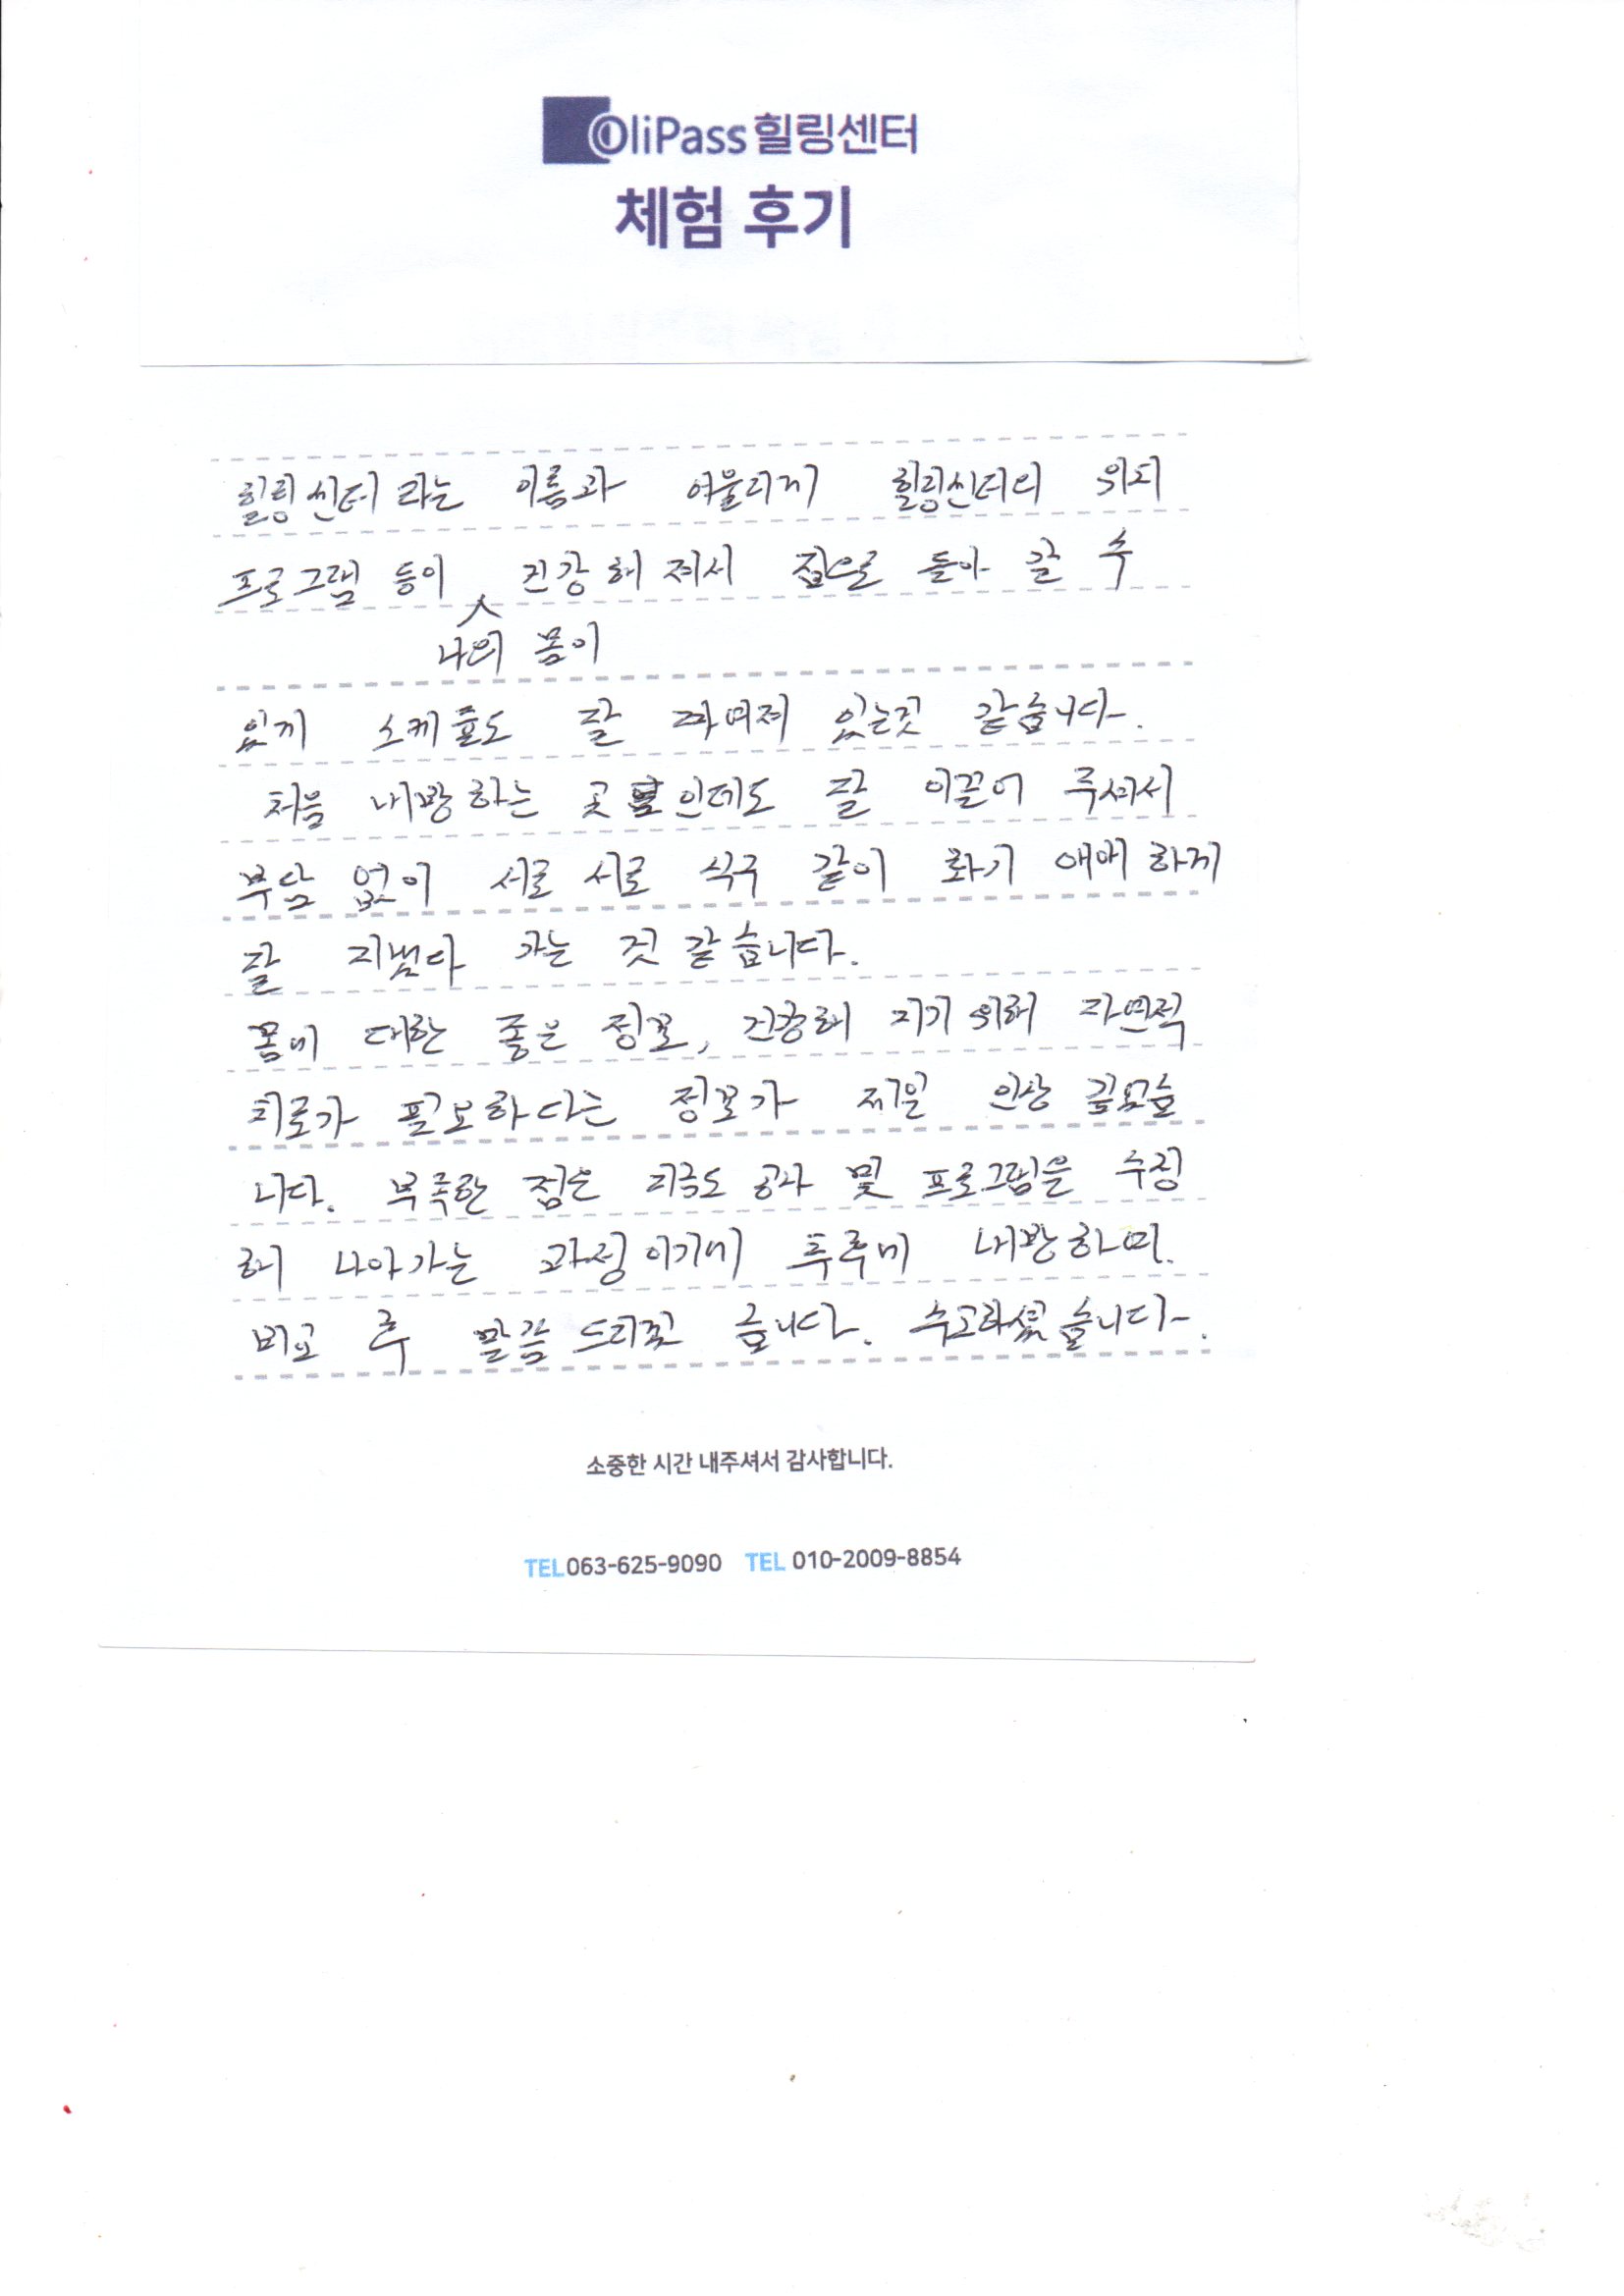 OliPass 힐링센터
체험 후기
힐링센터라는 이름과 어울리게 힐링센터의 위치
프로그램 등이 건강해져서 집으로 돌아 갈 수
나의 몸이
있게 스케쥴도 잘 짜여져 있는것 같습니다.
처음 내방하는 곳 인데도 잘 이끌어 주셔서
부담 없이 서로 서로 식구 같이 화기 애애 하게
잘 지냈다 가는 것 같습니다.
몸에 대한 좋은 정보, 건강해 지기 위해 자연적
치료가 필요하다는 정보가 제일 인상 깊었습
니다. 부족한 점은 지금도 공사 및 프로그램을 수정
해 나아가는 과정이기에 추후에 내방하며.
비교 후 말씀 드리고 습니다. 수고하셨습니다.
소중한 시간 내주셔서 감사합니다.
TEL 063-625-9090 TEL 010-2009-8854